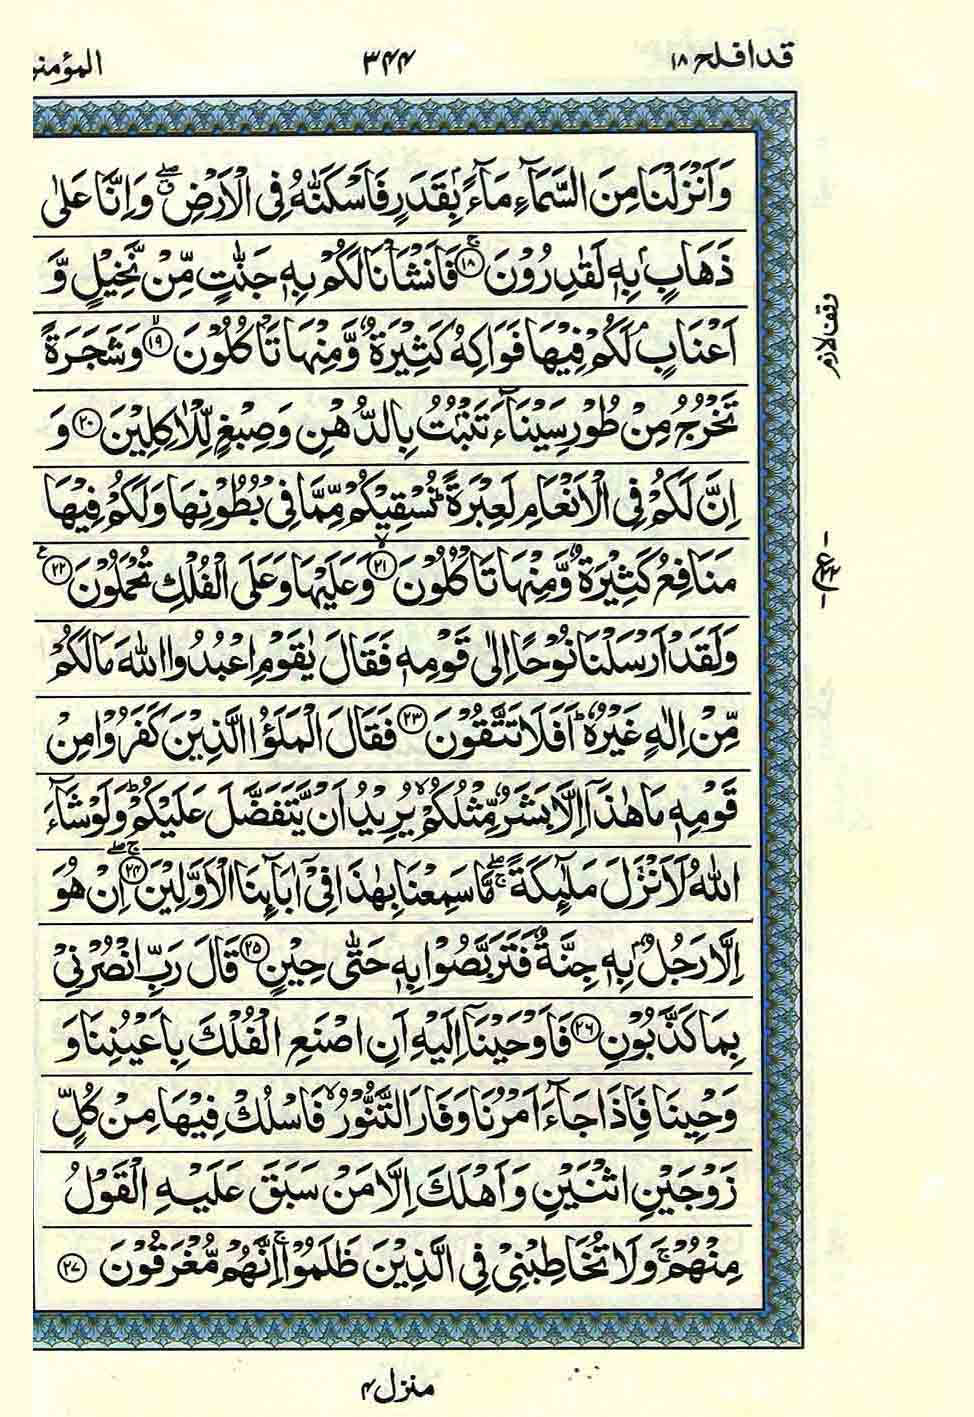 قد افلح ۱۸
۳۴۴
المؤمنو
وَاَنْزَلْنَا مِنَ السَّمَآءِ مَآءًۢ بِقَدَرٍ فَاَسْكَنّٰهُ فِى الْاَرْضِ ۖ وَاِنَّا عَلٰى
ذَهَابٍۢ بِهٖ لَقٰدِرُوْنَ ۚ‏ ﴿۱۸﴾ فَاَنْشَاْنَا لَكُمْ بِهٖ جَنّٰتٍ مِّنْ نَّخِيْلٍ وَّ
اَعْنَابٍ ۘ لَكُمْ فِيْهَا فَوَاكِهُ كَثِيْرَةٌ وَّمِنْهَا تَاْكُلُوْنَ ۙ ﴿۱۹﴾ وَشَجَرَةً
تَخْرُجُ مِنْ طُوْرِ سَيْنَآءَ تَنْۢبُتُ بِالدُّهْنِ وَصِبْغٍ لِّلْاٰكِلِيْنَ ﴿۲۰﴾ وَ
اِنَّ لَكُمْ فِى الْاَنْعَامِ لَعِبْرَةً ؕ نُسْقِيْكُمْ مِّمَّا فِىْ بُطُوْنِهَا وَلَكُمْ فِيْهَا
مَنَافِعُ كَثِيْرَةٌ وَّمِنْهَا تَاْكُلُوْنَ ۙ ﴿۲۱﴾ وَعَلَيْهَا وَعَلَى الْفُلْكِ تُحْمَلُوْنَ ﴿۲۲﴾ ع
وَلَقَدْ اَرْسَلْنَا نُوْحًا اِلٰى قَوْمِهٖ فَقَالَ يٰقَوْمِ اعْبُدُوا اللّٰهَ مَا لَكُمْ
مِّنْ اِلٰهٍ غَيْرُهٗ ؕ اَفَلَا تَتَّقُوْنَ ﴿۲۳﴾ فَقَالَ الْمَلَؤُا الَّذِيْنَ كَفَرُوْا مِنْ
قَوْمِهٖ مَا هٰذَاۤ اِلَّا بَشَرٌ مِّثْلُكُمْ ۙ يُرِيْدُ اَنْ يَّتَفَضَّلَ عَلَيْكُمْ ؕ وَلَوْ شَآءَ
اللّٰهُ لَاَنْزَلَ مَلٰٓئِكَةً ۖۚ مَّا سَمِعْنَا بِهٰذَا فِىْۤ اٰبَآئِنَا الْاَوَّلِيْنَ ۚ ﴿۲۴﴾ اِنْ هُوَ
اِلَّا رَجُلٌۢ بِهٖ جِنَّةٌ فَتَرَبَّصُوْا بِهٖ حَتّٰى حِيْنٍ ﴿۲۵﴾ قَالَ رَبِّ انْصُرْنِىْ
بِمَا كَذَّبُوْنِ ﴿۲۶﴾ فَاَوْحَيْنَاۤ اِلَيْهِ اَنِ اصْنَعِ الْفُلْكَ بِاَعْيُنِنَا وَ
وَحْيِنَا فَاِذَا جَآءَ اَمْرُنَا وَفَارَ التَّنُّوْرُ ۙ فَاسْلُكْ فِيْهَا مِنْ كُلٍّ
زَوْجَيْنِ اثْنَيْنِ وَاَهْلَكَ اِلَّا مَنْ سَبَقَ عَلَيْهِ الْقَوْلُ
مِنْهُمْ ۚ وَلَا تُخَاطِبْنِىْ فِى الَّذِيْنَ ظَلَمُوْا ۚ اِنَّهُمْ مُّغْرَقُوْنَ ﴿۲۷﴾
وقف لازم
منزل ۴